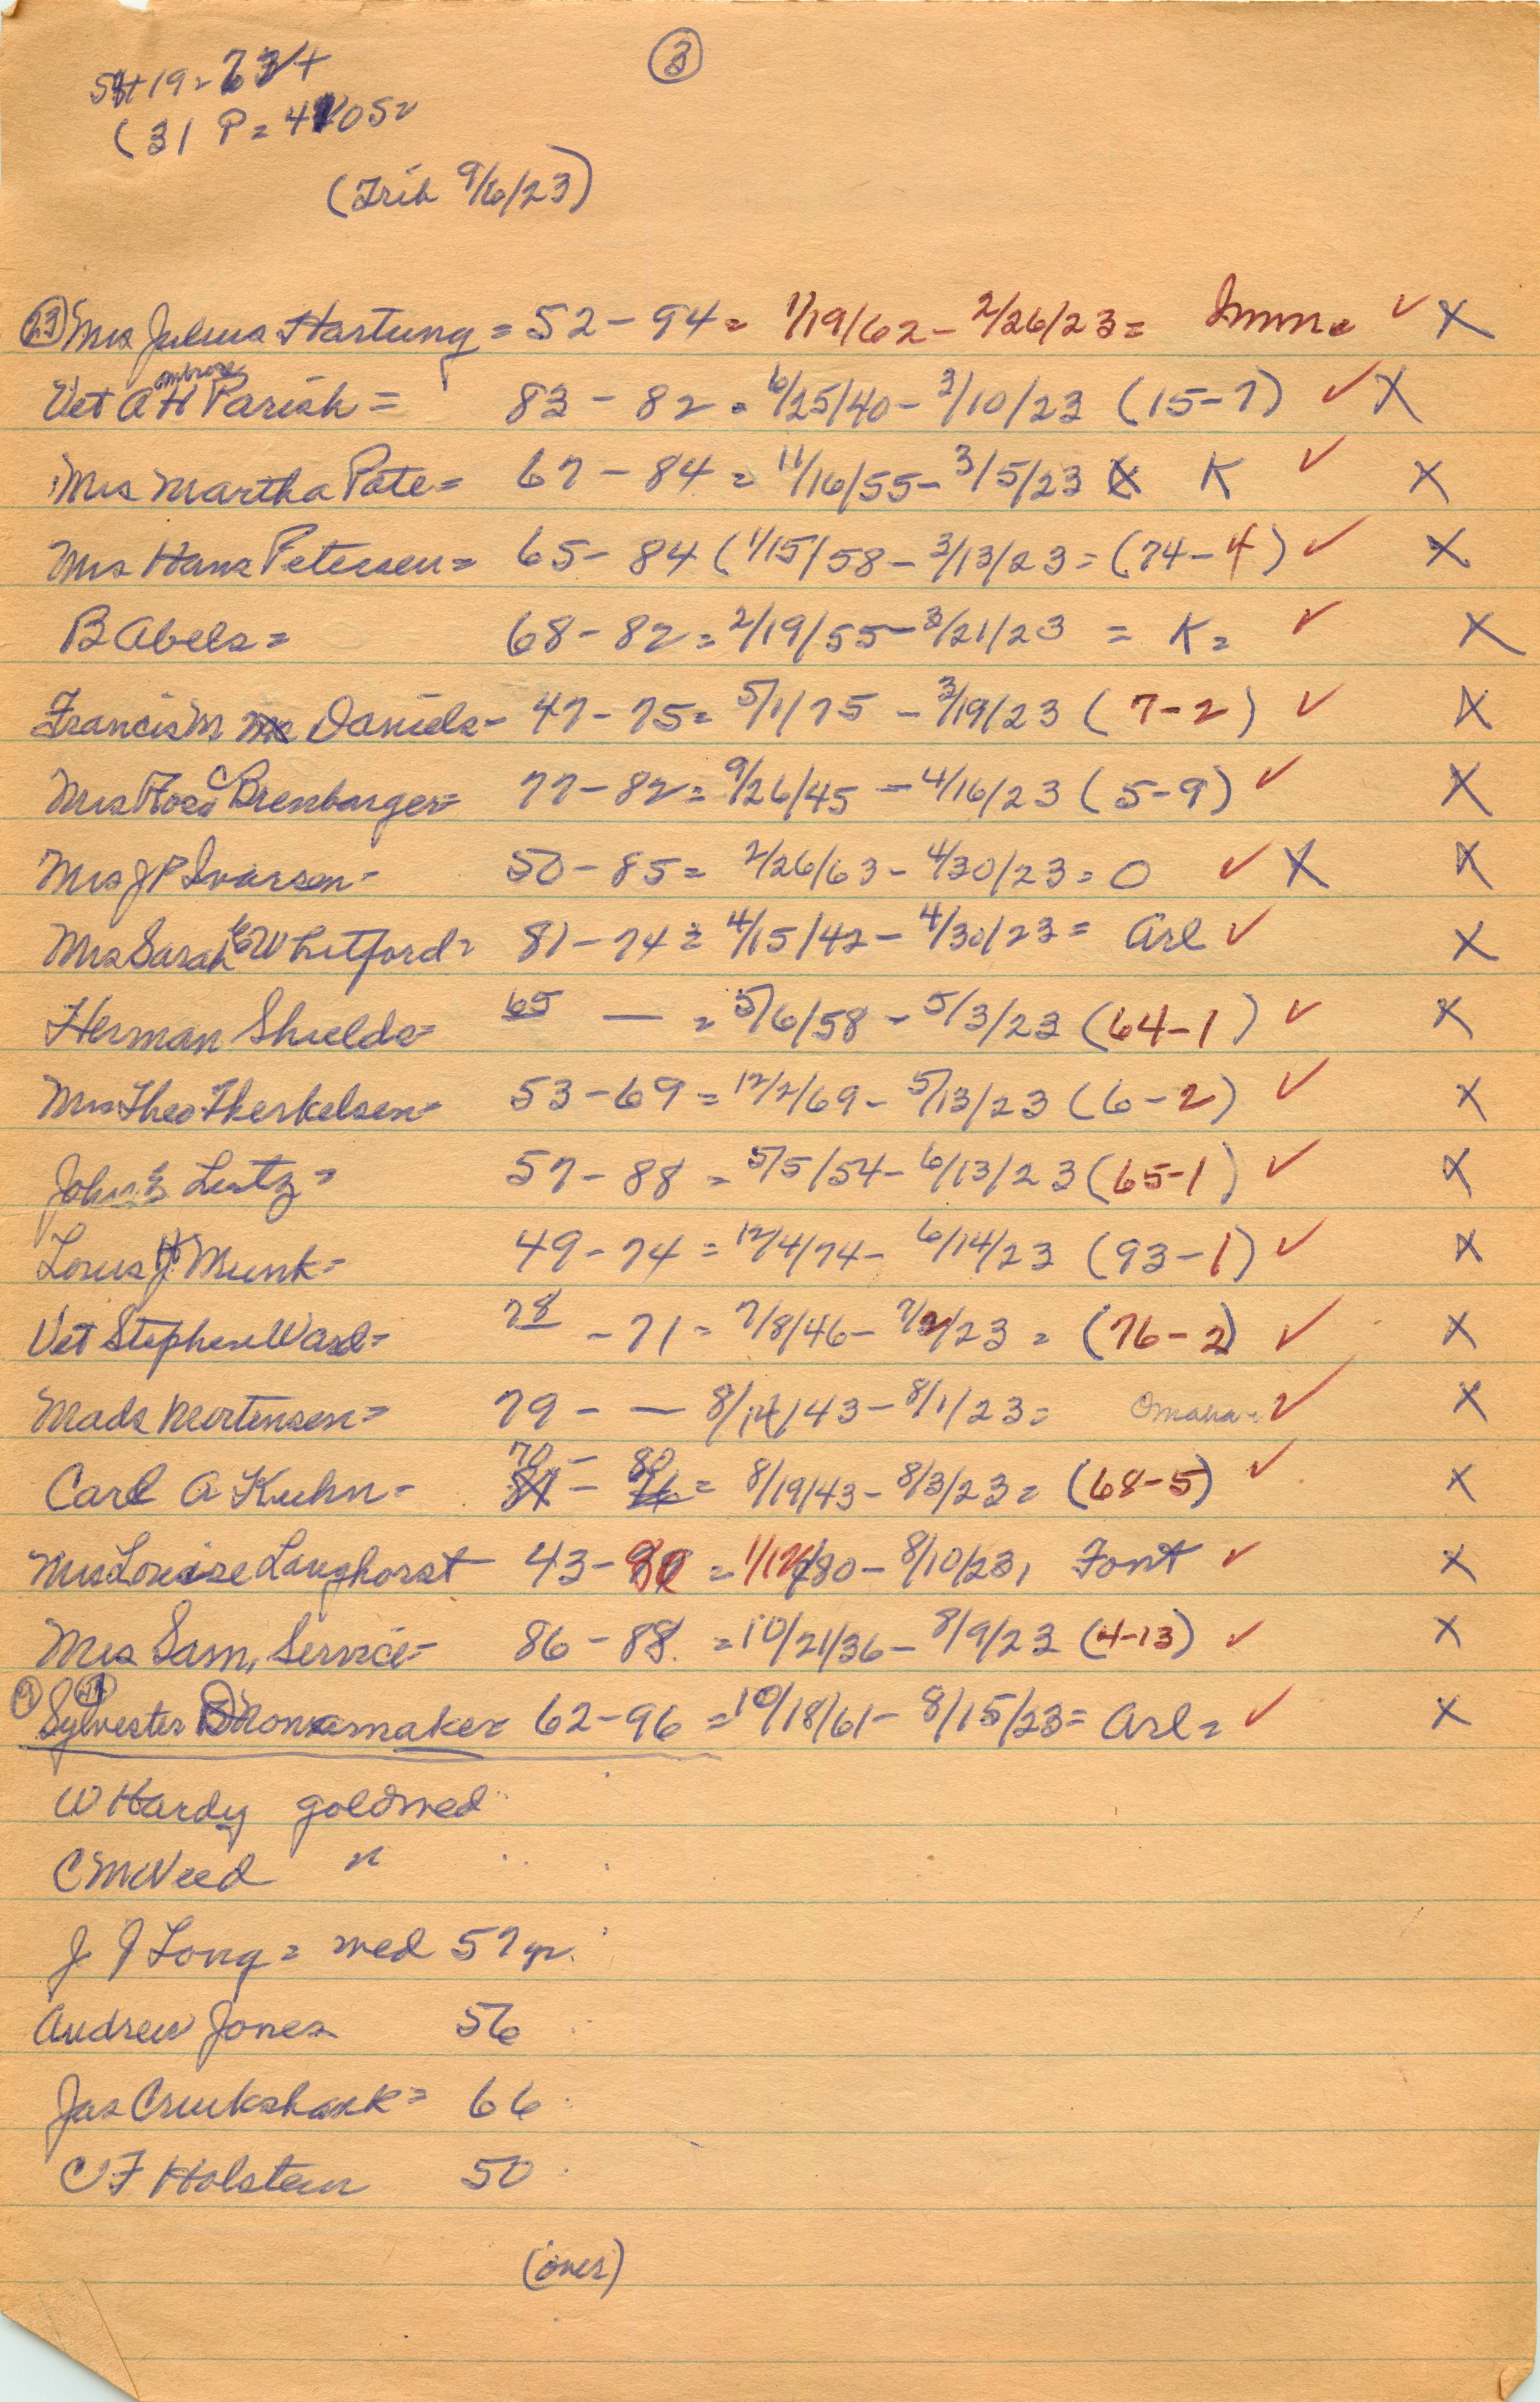 3
54+19=73+
(31 P=4105=
(Trib 9/6/23)
23 Mrs Julius Hartung = 52 - 94 = 1/19/62 - 2/26/23 = Imm = ✓ X
Vet A H Ambrose Parish = 83 - 82 = 6/25/40 - 3/10/23 (15-7) ✓ X
Mrs Martha Pate = 67 - 84 = 11/16/55 - 3/5/23 K ✓ X
Mrs Hans Petersen = 65 - 84 (1/15/58 - 3/13/23 = (74-4) ✓ X
B Abels = 68 - 82 = 2/19/55 - 3/21/23 = K = ✓ X
Francis M Daniels - 47 - 75 = 5/1/75 - 3/19/23 (7-2) ✓ X
Mrs Rosa C Brenbarger = 77 - 82 = 9/26/45 - 4/16/23 (5-9) ✓ X
Mrs J P Ivarsen - 50 - 85 = 2/26/63 - 4/30/23 = O ✓ X X
Mrs Sarah E Whitford = 81 - 74 = 4/15/42 - 4/30/23 = Arl ✓ X
Herman Shields = 65 — = 5/6/58 - 5/3/23 (64-1) ✓ X
Mrs Theo Therkelsen - 53 - 69 = 12/2/69 - 5/13/23 (6-2) ✓ X
John E Lutz = 57 - 88 = 5/5/54 - 6/13/23 (65-1) ✓ X
Louis J Munk = 49 - 74 = 12/4/74 - 6/14/23 (93-1) ✓ X
Vet Stephen Ward = 78 - 71 = 7/8/46 - 7/2/23 = (76-2) ✓ X
Mads Mortensen = 79 - — 8/14/43 - 8/1/23 = Omaha - ✓ X
Carl A Kuhn - 70 - 80 = 8/19/43 - 8/3/23 = (68-5) ✓ X
Mrs Louise Langhorst 43 - = 1/12/80 - 8/10/23, Font ✓ X
Mrs Sam, Service - 86 - 88 = 10/21/36 - 8/9/23 (4-13) ✓ X
Sylvester D Wonamaker = 62 - 96 = 10/18/61 - 8/15/23 = Arl = ✓ X
W Hardy gold wed
C M Weed "
J J Long = wed 57 yr.
Andrew Jones 56
Jas Cruikshank = 66
C F Holstein 50
(over)